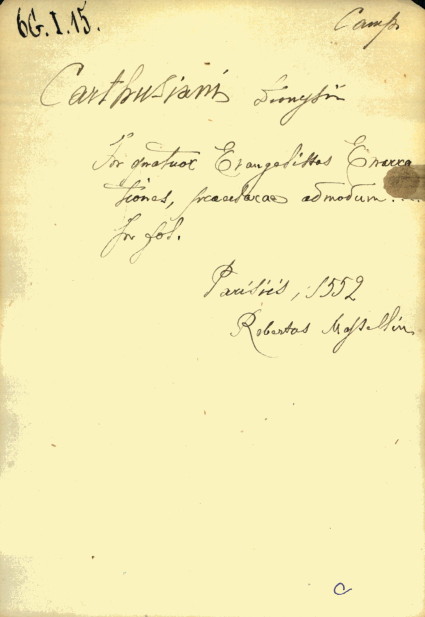 6G.I.15.
Camp.
Carthusiani Dionysii
In quatuor Evangelistas Enarra
tiones, praeclarae admodum....
In fol.
Parisiis, 1552
Robertus Massellin
C